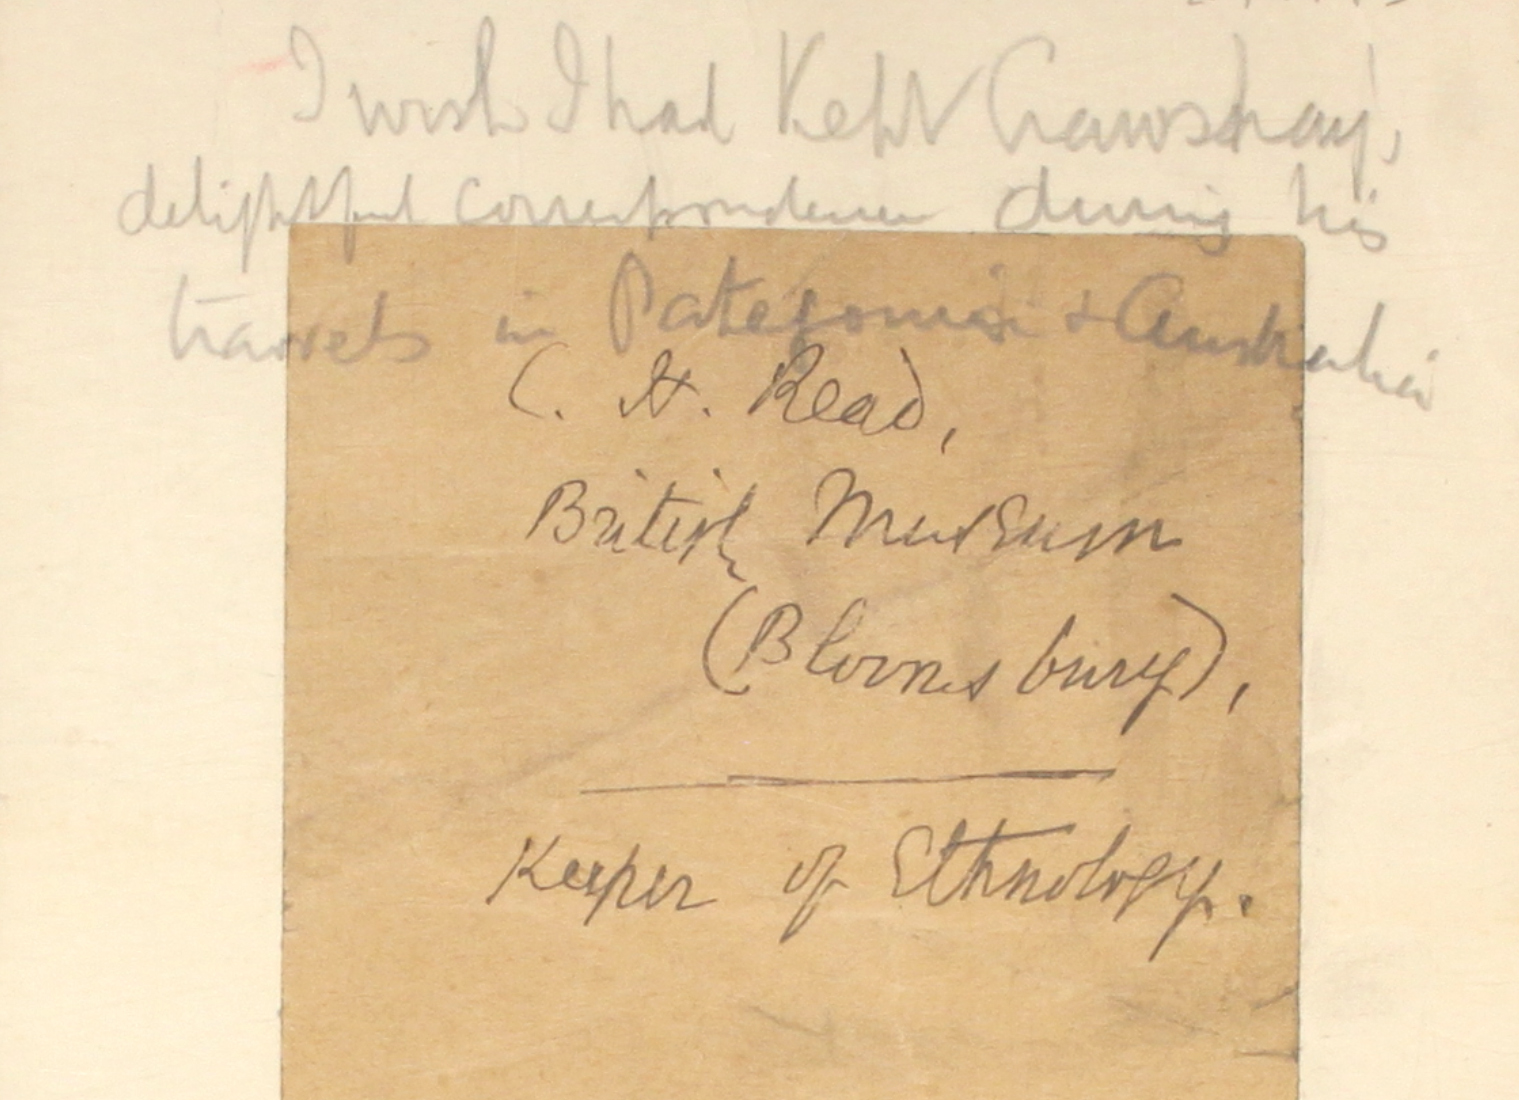 I wish I had Kept Crawshay's
delightful correspondence during his
travels in Patagonia + Australia
C. H. Read,
British Museum
(Bloomsbury),
Keeper of Ethnology.